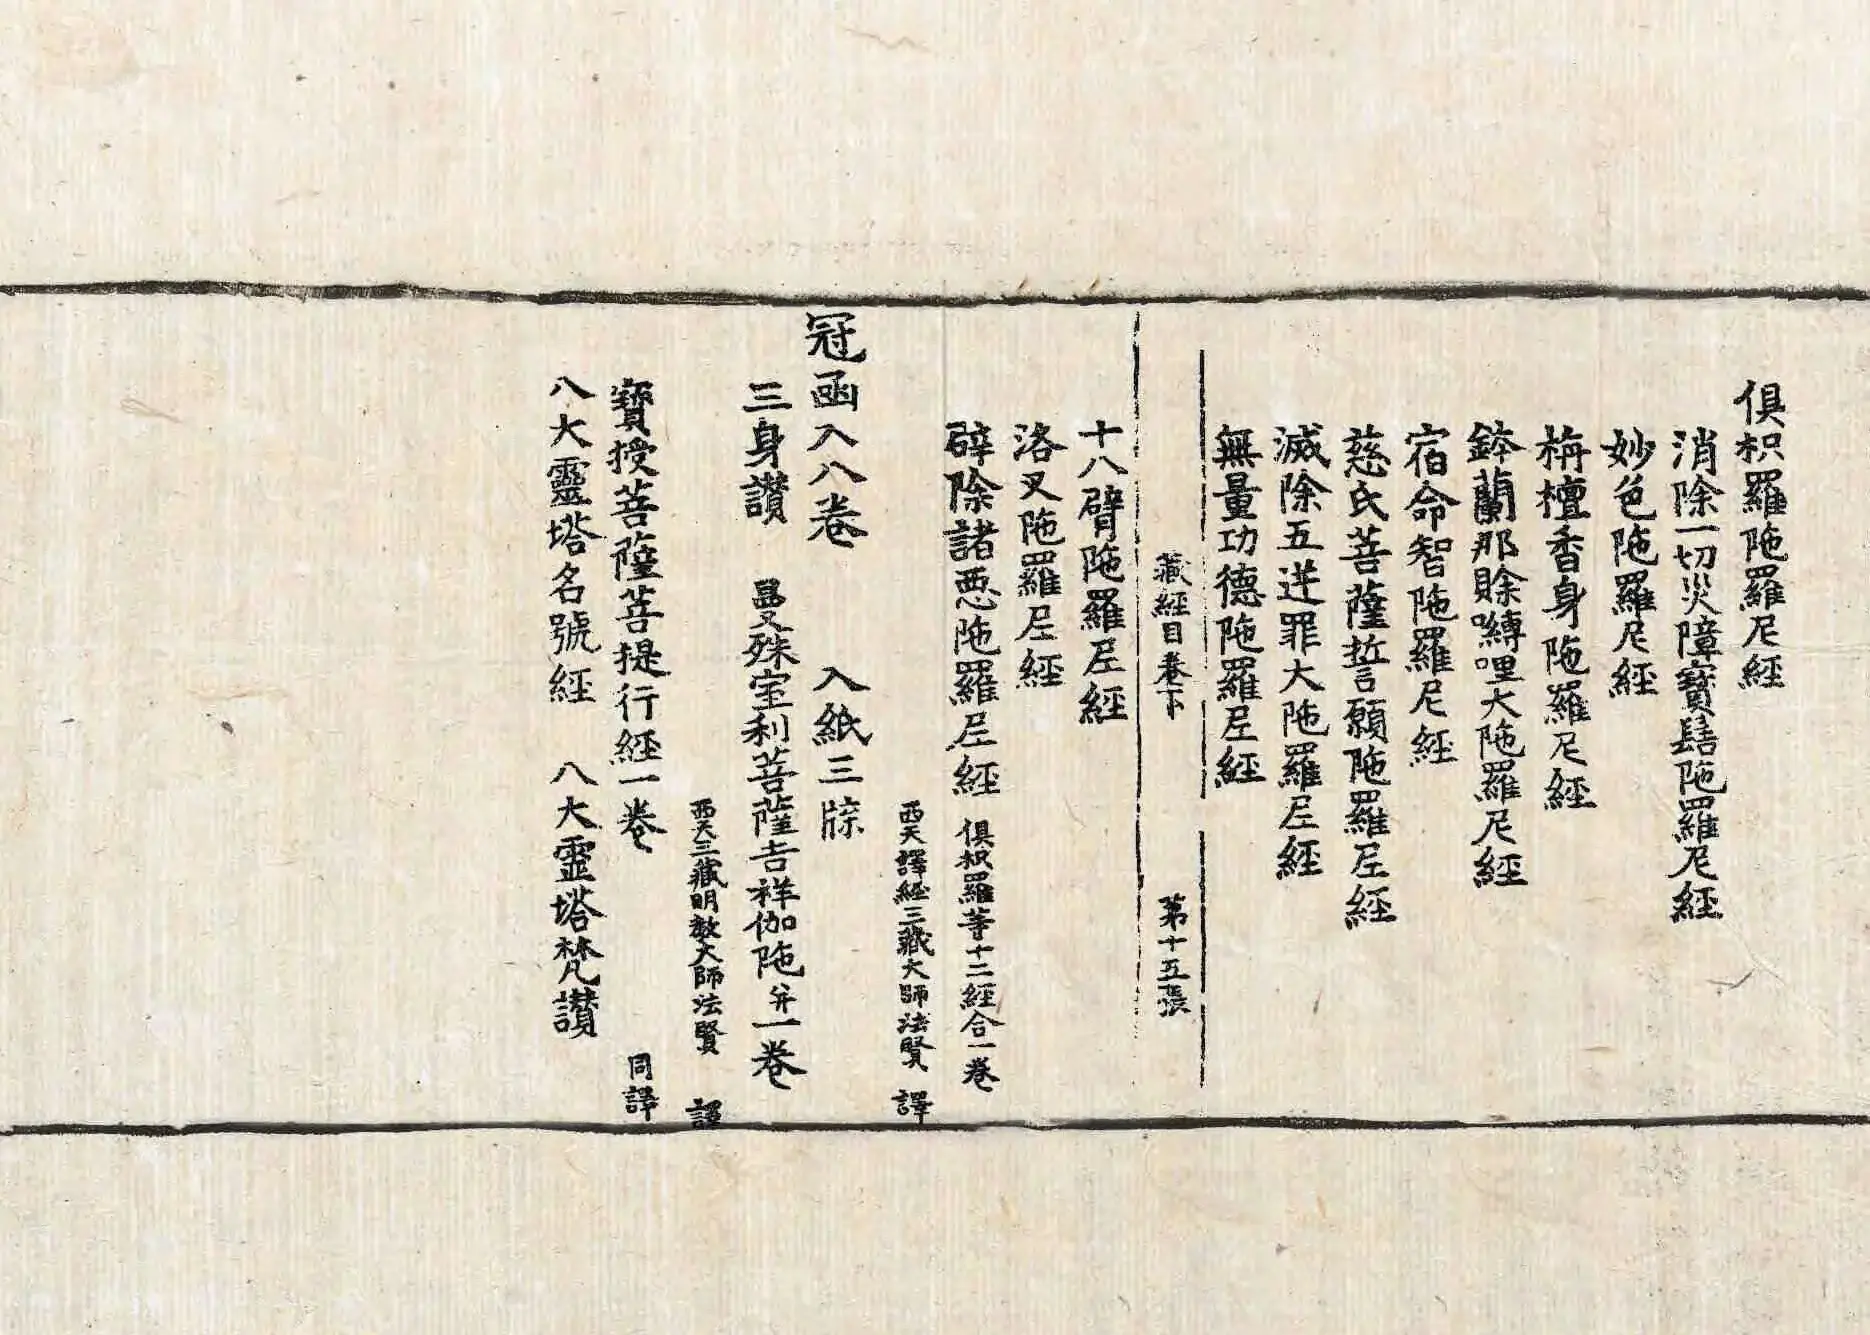 俱枳羅陁羅尼經
消除一切災障寶髻陁羅尼經
妙色陁羅尼經
栴檀香身陁羅尼經
鉢蘭那賒嚩哩大陁羅尼經
宿命智陁羅尼經
慈氏菩薩誓願陁羅尼經
滅除五逆罪大陁羅尼經
無量功德陁羅尼經
藏經目卷下 第十五張
十八臂陁羅尼經
洛叉陁羅尼經
辟除諸惡陁羅尼經 俱枳羅等十二經合一卷
西天譯經三藏大師法賢 譯
冠函入八卷 入紙三牒
三身讃 曼殊室利菩薩吉祥伽陁并一卷
西天三藏明教大師法賢 詔
寶授菩薩菩提行經一卷 同譯
八大靈塔名號經 八大靈塔梵讃